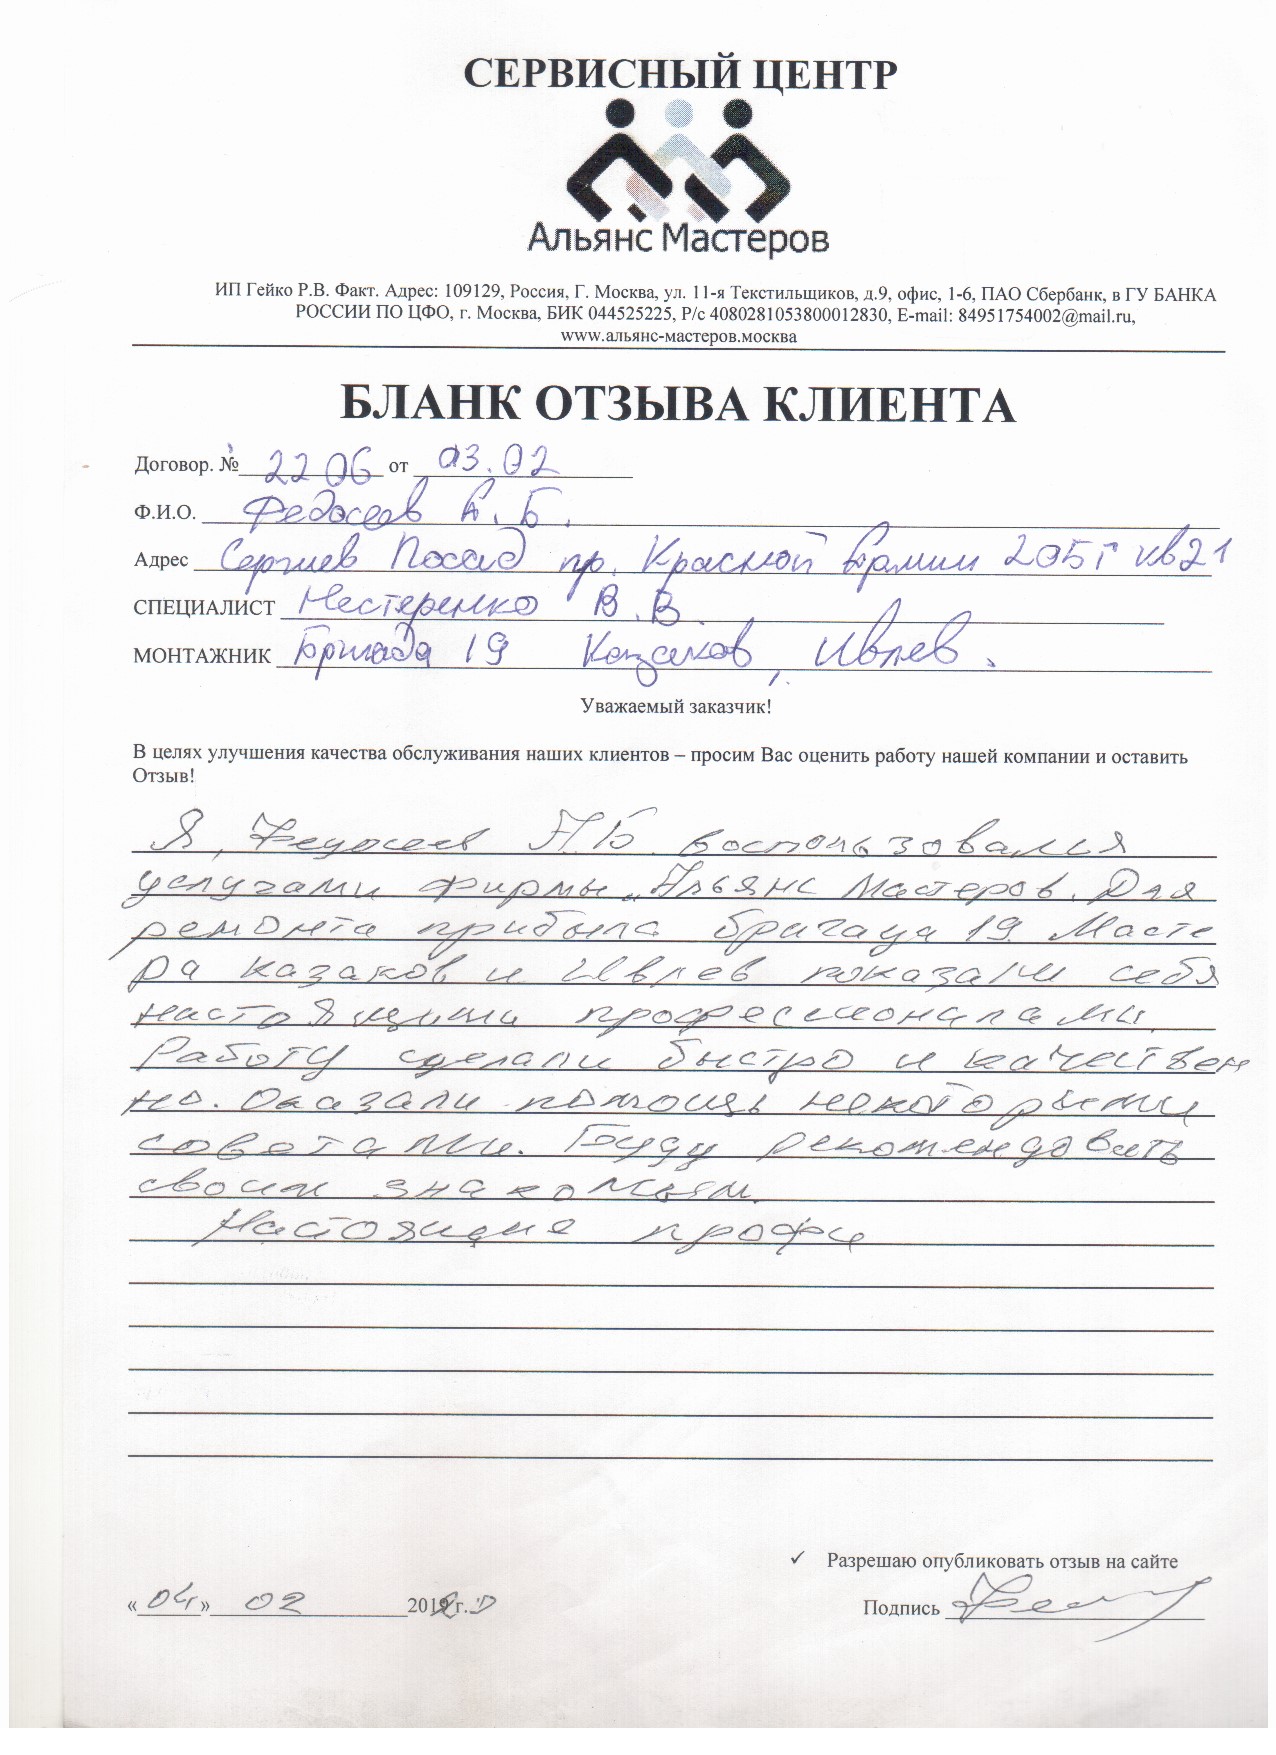 СЕРВИСНЫЙ ЦЕНТР
Альянс Мастеров
ИП Гейко Р.В. Факт. Адрес: 109129, Россия, Г. Москва, ул. 11-я Текстильщиков, д.9, офис, 1-6, ПАО Сбербанк, в ГУ БАНКА
РОССИИ ПО ЦФО, г. Москва, БИК 044525225, Р/с 4080281053800012830, E-mail: 84951754002@mail.ru,
www.альянс-мастеров.москва
БЛАНК ОТЗЫВА КЛИЕНТА
Договор. № 2206 от 03.02
Ф.И.О. Федосеев А. Б.
Адрес Сергиев Посад пр. Красной Армии 205Г кв21
СПЕЦИАЛИСТ Нестеренко В.В.
МОНТАЖНИК Бригада 19 Казаков, Ивлев.
Уважаемый заказчик!
В целях улучшения качества обслуживания наших клиентов – просим Вас оценить работу нашей компании и оставить
Отзыв!
Я, Федосеев А.Б. воспользовался
услугами фирмы „Альянс Мастеров. Для
ремонта прибыла бригада 19. Масте
ра Казаков и Ивлев показали себя
настоящими профессионалами.
Работу сделали быстро и качествен
но. Оказали помощь некоторыми
советами. Буду рекомендовать
своим знакомым.
Настоящие профи
✓ Разрешаю опубликовать отзыв на сайте
«04» 02 2019 г. Подпись